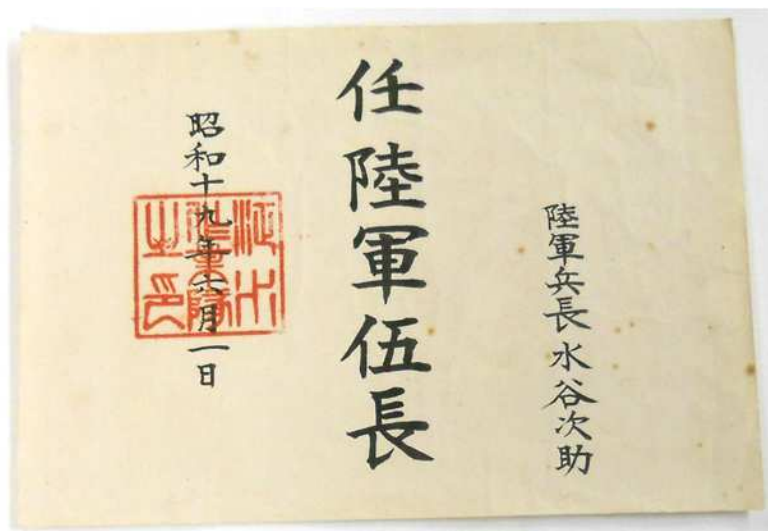 陸軍兵長 水谷次助
任陸軍伍長
昭和十九年六月一日